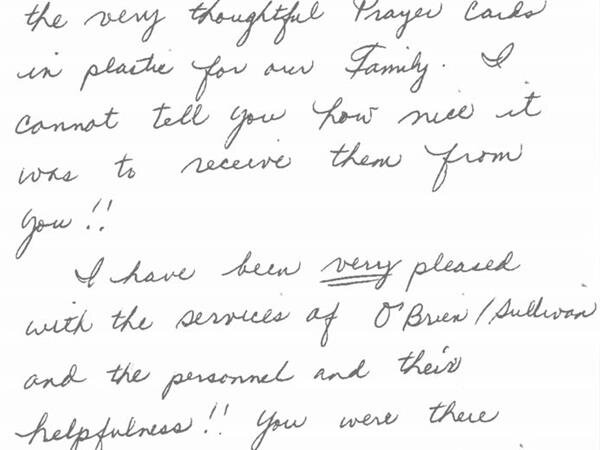 the very thoughtful Prayer Cards
in plastic for our Family. I
cannot tell you how nice it
was to receive them from
you!!
I have been very pleased
with the services of O'Brien/Sullivan
and the personnel and their
helpfulness!! You were there